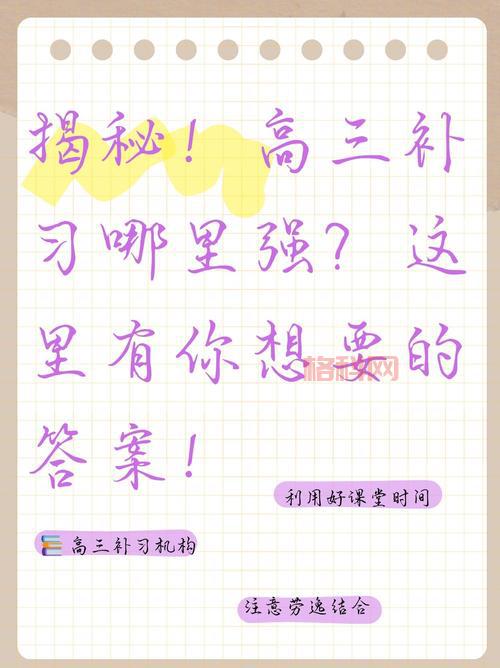 揭秘！高三补
习哪里强？这
里有你想要的
答案！
格科网
利用好课堂时间
高三补习机构
注意劳逸结合